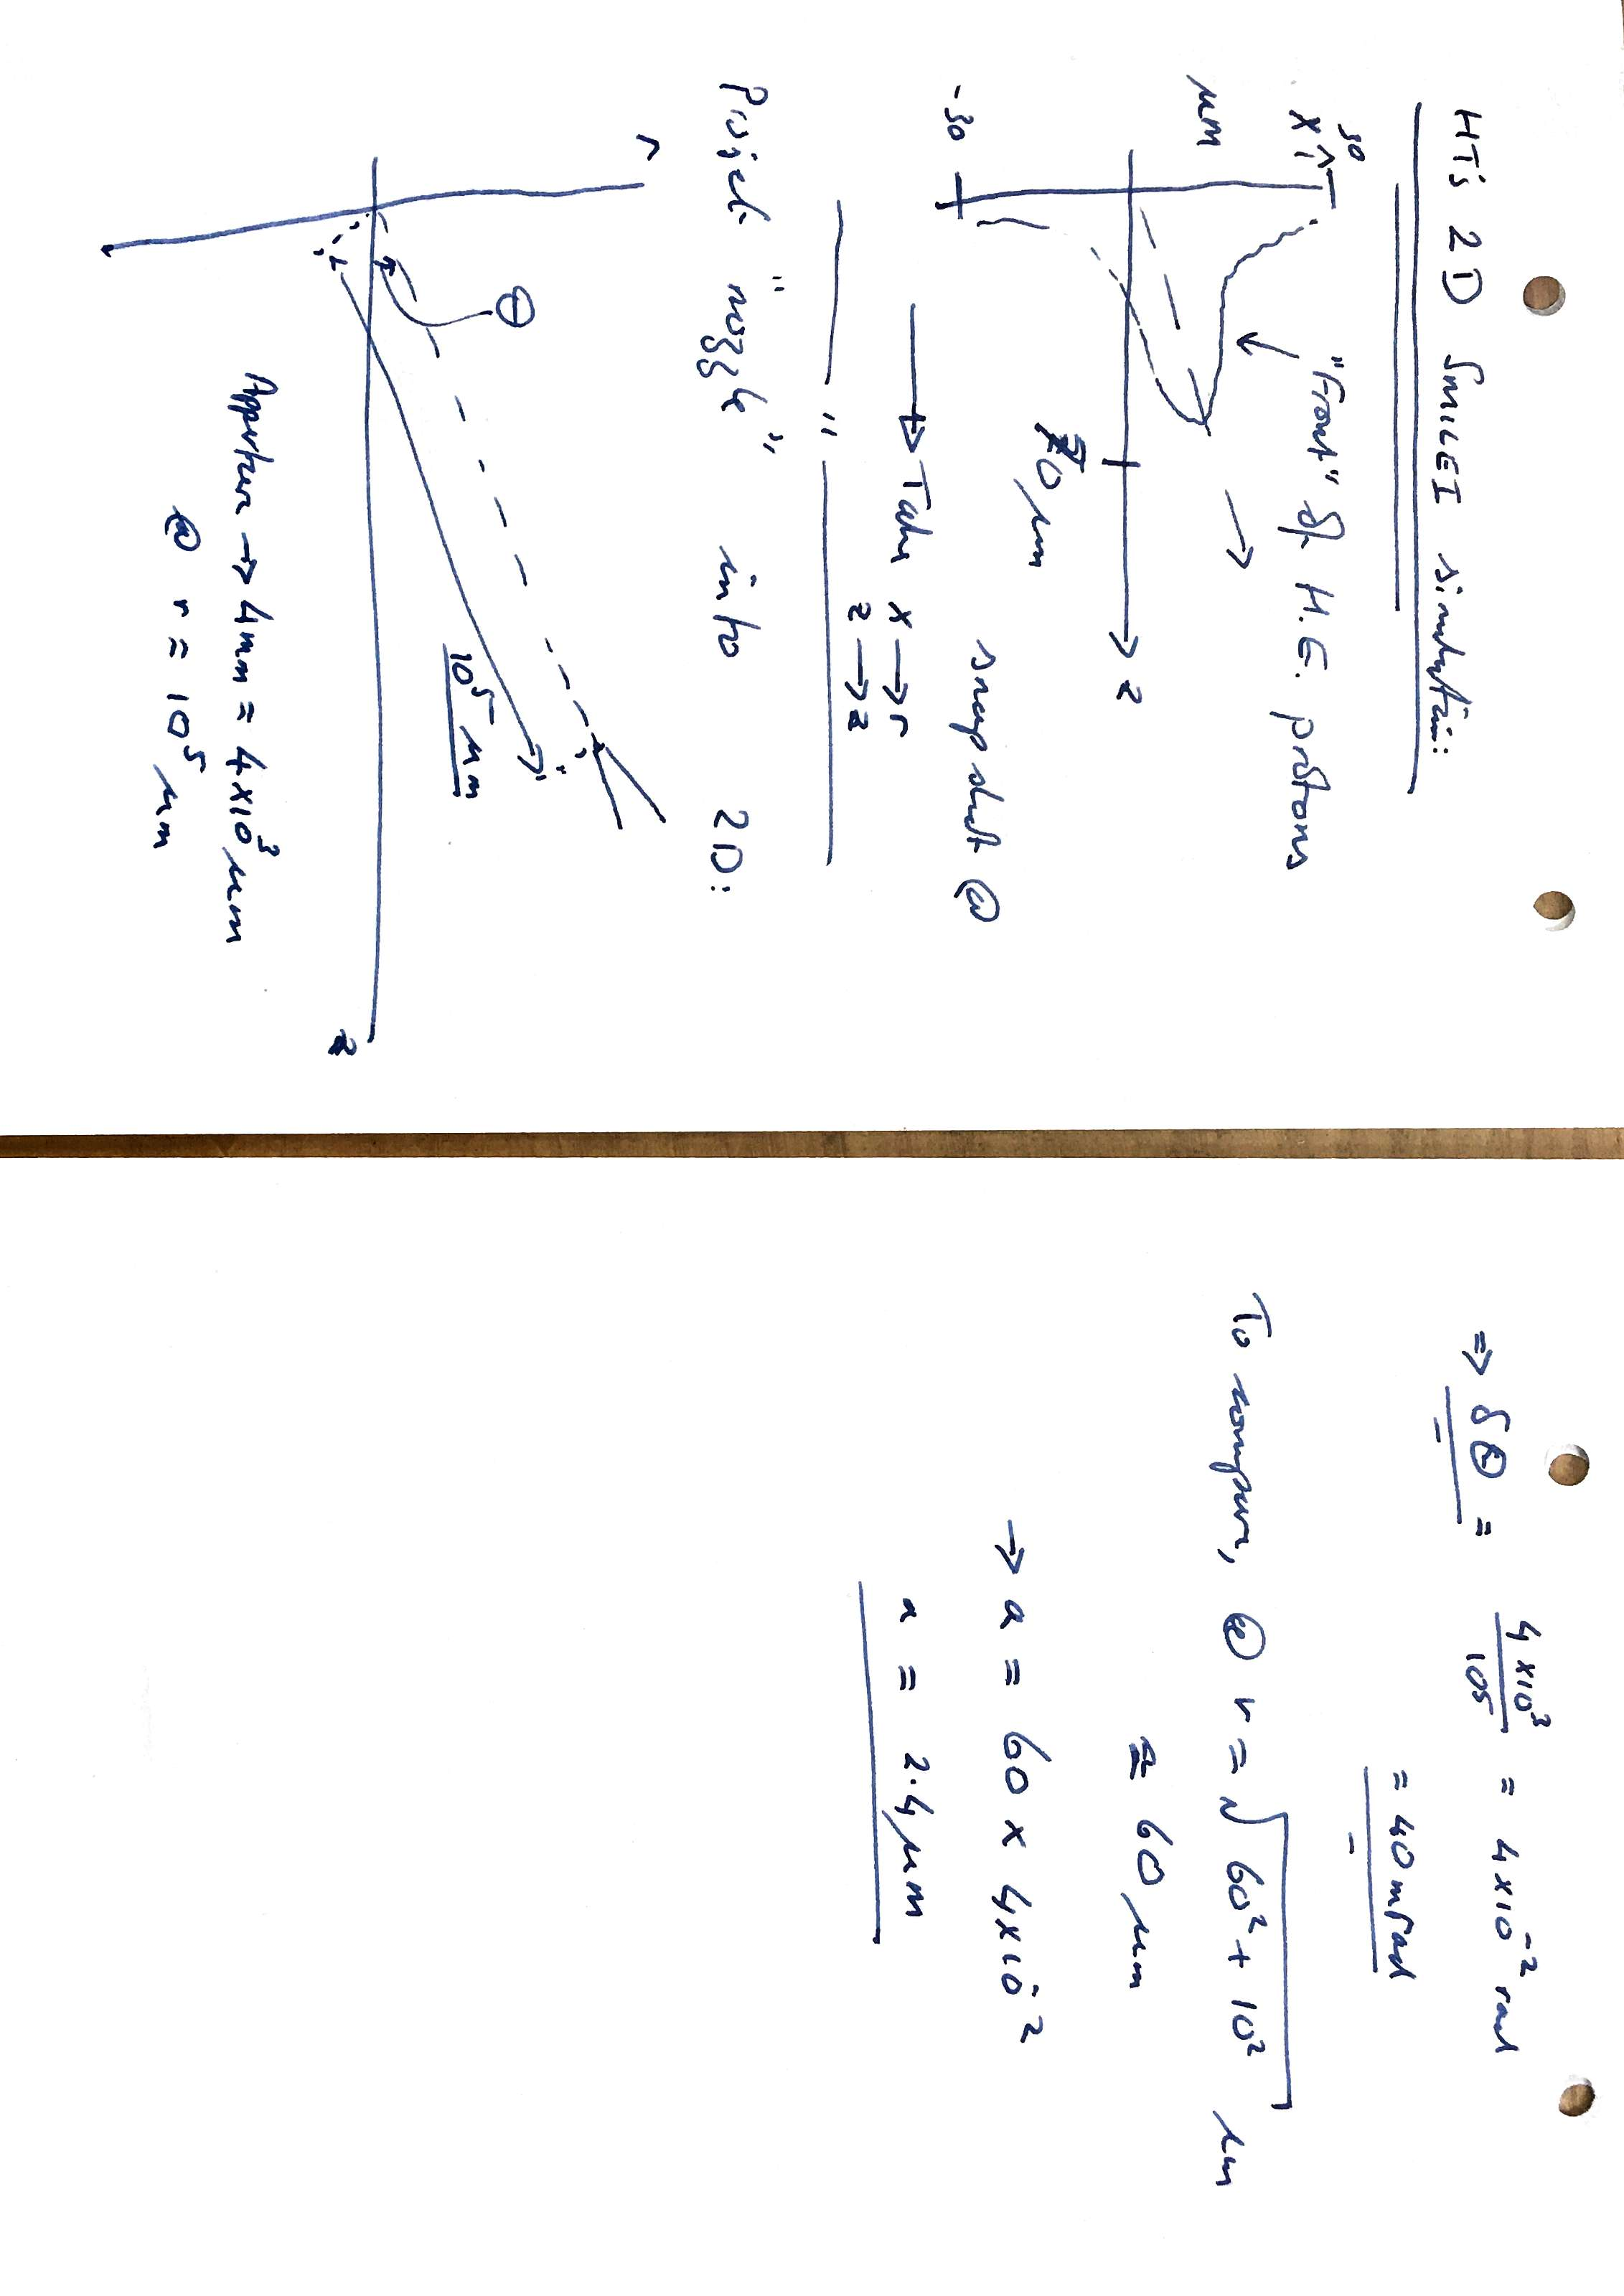 HT's 2D SMILEI simulation:
30
x
"Front" of H.E. protons
μm
z
-30
70 μm
snapshot @
→ Take x → r
z → z
"
Project "nozzle" into 2D:
r
θ
10⁵ μm
z
Apperture → 4mm = 4×10³ μm
@ r = 10⁵ μm
⇒ δθ = 4×10³ / 10⁵ = 4×10⁻² rad
= 40 mrad
To compare, @ r = √60² + 10² μm
≈ 60 μm
→ a = 60 × 4×10⁻²
a = 2.4 μm